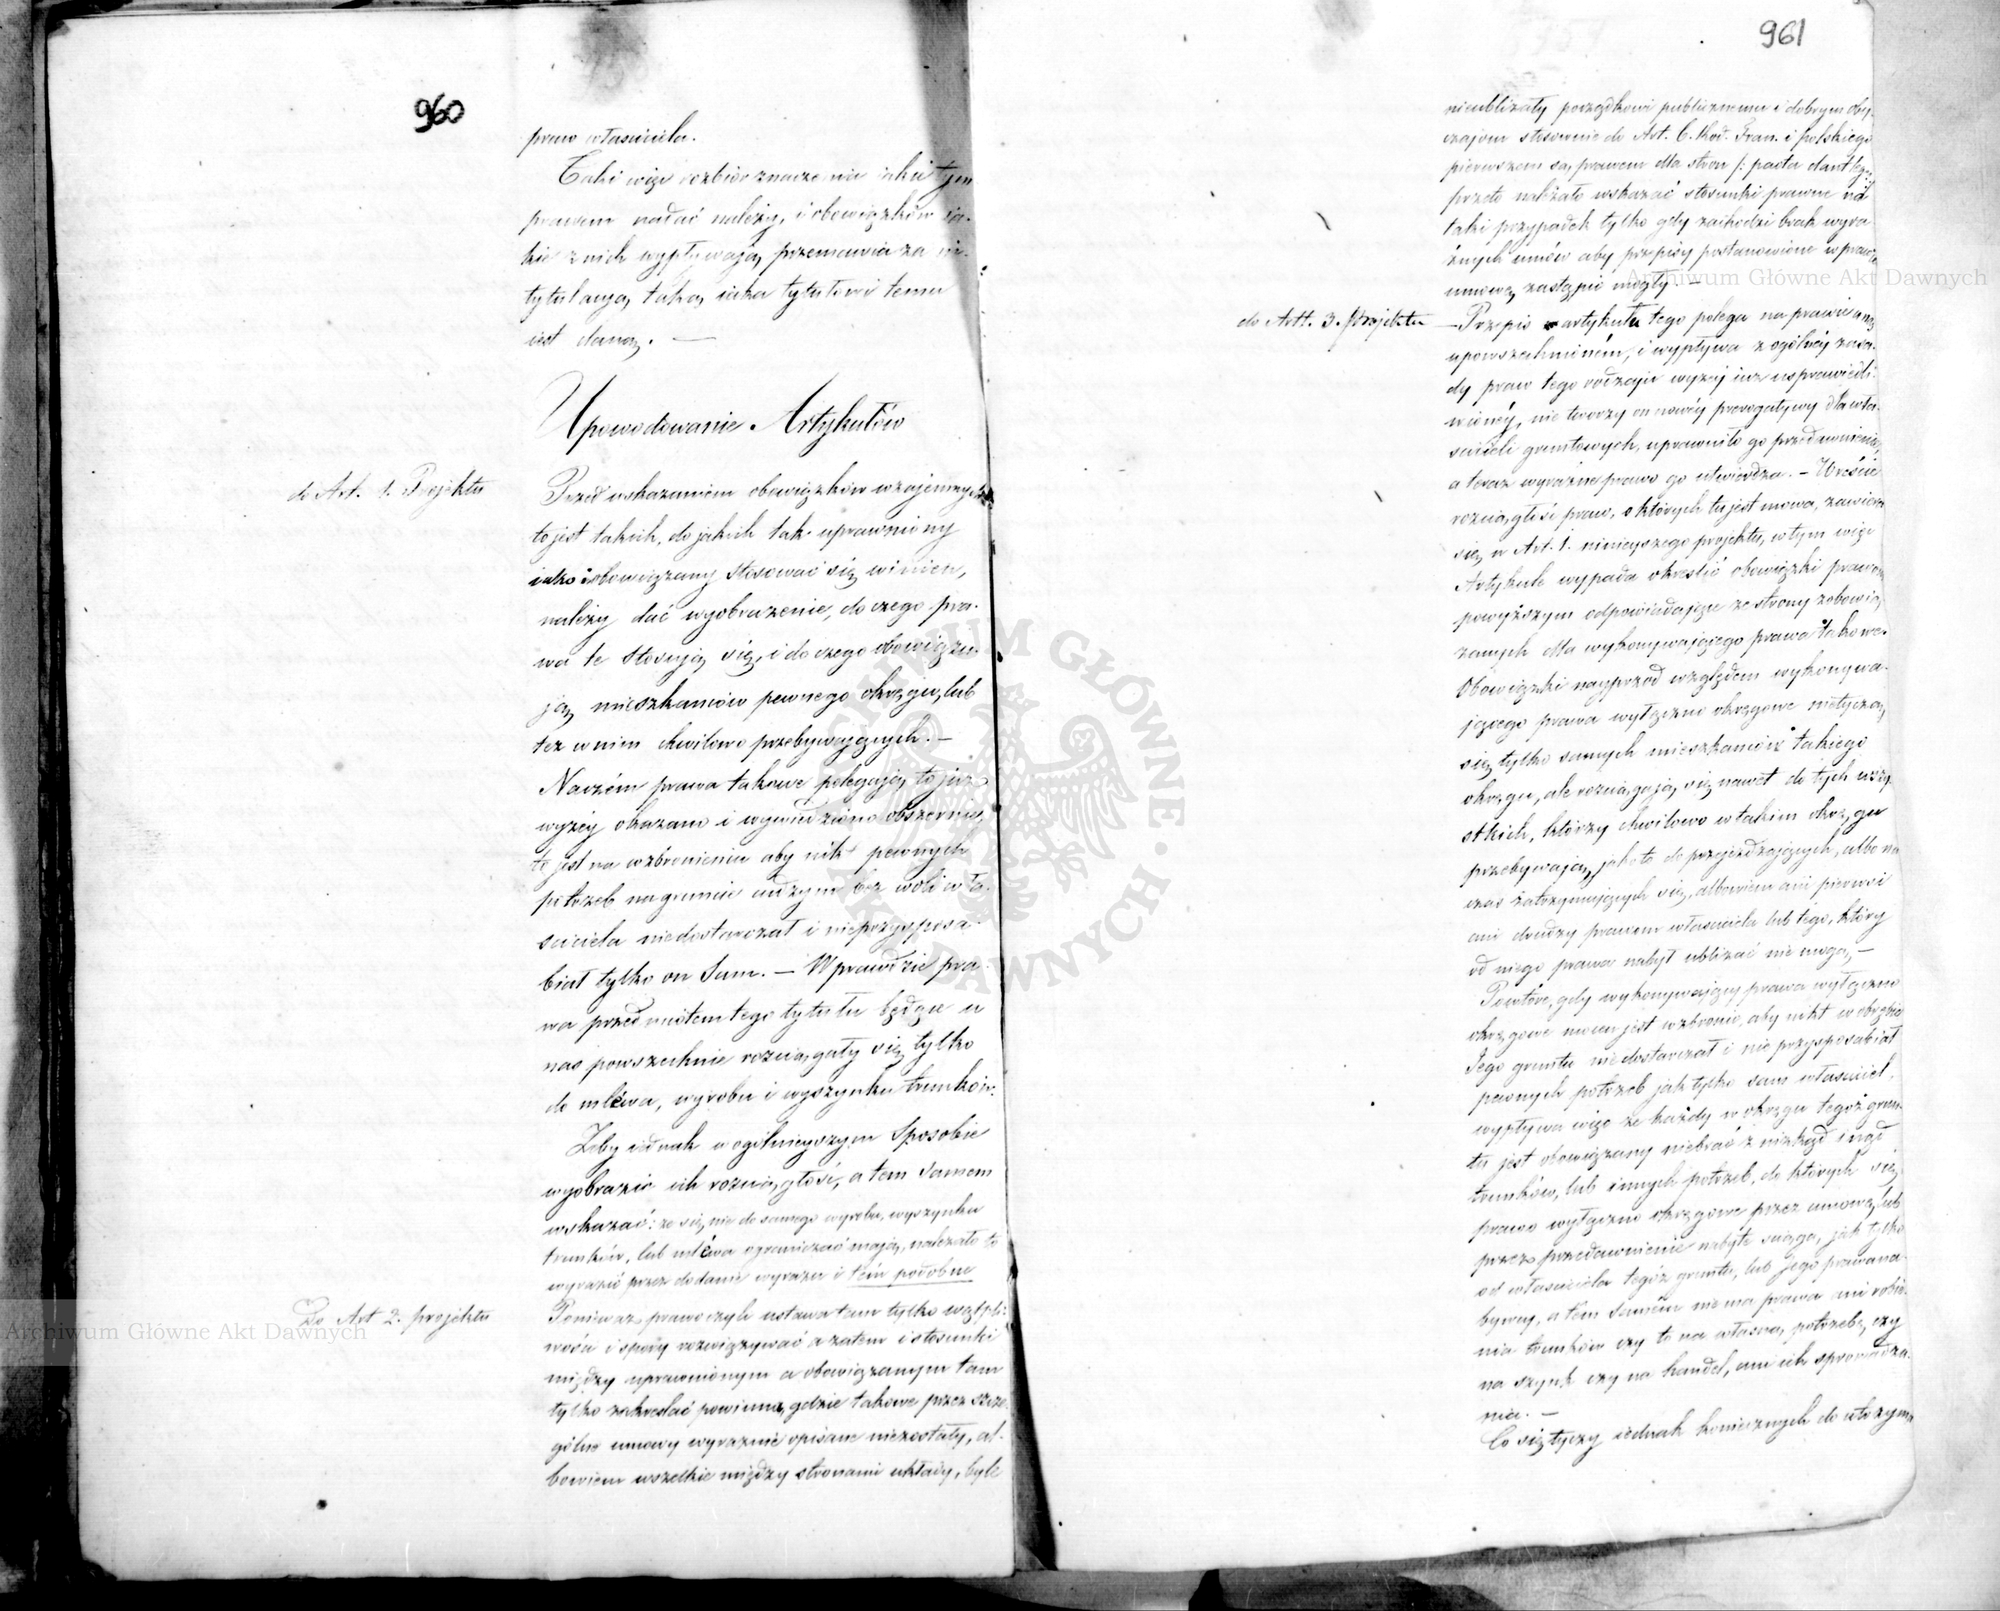 960
prawo własciciela.
Taki więc rozbiór znaczenia jakie tym
prawom nadać należy, i obowiązków ja-
kie z nich wypływają, przemawia za in-
tytulacyą taką, jaka tytułowi temu
jest daną. —
Upowodowanie Artykułów
do Art. 1. Projektu
Przed wskazaniem obowiązków wzajemnych
to jest takich, do jakich tak uprawniony
jako i obowiązany stosować się winien,
należy dać wyobrażenie, do czego pra-
wa te stosują się, i do czego obowiązu-
ją, mieszkańców pewnego okręgu, lub
też w nim chwilowo przebywających. —
Na czém prawa takowe polegają, to już
wyżéy okazano i wywiedziono obszernie,
to jest na wzbronieniu aby nikt pewnych
potrzeb na gruncie cudzym bez woli wła-
sciciela niedostarczał i nieprzysposa-
biał tylko on sam. — Wprawdzie pra-
wa przedmiotem tego tytułu będące u
nas powszechnie rozciągały się, tylko
do mléwa, wyrobu i wyszynku trunków.
Żeby jednak w ogólnieyszym sposobie
wyobrazić ich rozciągłość, a tem samem
wskazać: że się nie do samego wyrobu, wyszynku
trunków, lub mléwa ograniczać mają, należało to
wyrazić przez dodanie wyrazu i tém podobne
Do Art 2. projektu
Ponieważ prawo czyli ustawa tam tylko wątpli-
wości i spory rozwiązywać a zatem i stosunki
między uprawnionym a obowiązanym tam
tylko zakreslać powinna, gdzie takowe przez szcze-
gólne umowy wyraźnie opisane niezostały, al-
bowiem wszelkie między stronami układy, byle
961
nieubliżały porządkowi publicznemu i dobrym oby-
czajom stosownie do Art. 6. Kod. Fran. i polskiego
pierwszem są, prawem dla stron /: pacta dant legem
przeto należało wskazać stosunki prawne na
taki przypadek tylko gdy zachodzi brak wyra-
źnych umów aby przepisy postanowione w prawie
umowę, zastąpić mogły. —
do Artt. 3. Projektu
— Przepis artykułu tego polega na prawie u nas
upowszechnioném, i wypływa z ogólnéy zasa-
dy praw tego rodzaju wyżéy już usprawiedli-
wionéy, nie tworzy on nowéy prerogatywy dla wła-
scicieli gruntowych, uprawniło go przedawnienie,
a teraz wyraźne prawo go utwierdza. — Wreście
rozciągłość praw, o których tu jest mowa, zawiera
się, w Art. 1. ninieyszego projektu, w tym więc
Artykule wypada okreslić obowiązki prawom
powyższym odpowiadające ze strony zobowią-
zanych dla wykonywającego prawa takowe.
Obowiązki nayprzód względem wykonywa-
jącego prawa wyłączno okręgowe nietyczą,
się, tylko samych mieszkańców takiego
okręgu, ale rozciągają, się nawet do tych wszy-
stkich, którzy chwilowo w takim okręgu
przebywają, jakoto do przejeżdżających, albo na
czas zatrzymujących się, albowiem ani pierwsi
ani drudzy prawom własciciela lub tego, który
od niego prawa nabył ubliżać nie mogą, —
Powtóre, gdy wykonywający prawa wyłączno
okręgowe mocen jest wzbronić, aby nikt w obrębie
Jego gruntu niedostarczał i nie przysposabiał
pewnych potrzeb jak tylko sam własciciel,
wypływa więc że każdy w okręgu tegoż grun-
tu jest obowiązany niebrać z nizkąd inąd
trunków, lub innych potrzeb, do których się,
prawo wyłączno okręgowe przez umowę, lub
przez przedawnienie nabyte sciąga, jak tylko
od własciciela tegóż gruntu, lub jego prawana-
bywcy, a tém samém nie ma prawa ani robie-
nia trunków czy to na własną, potrzebę, czy
na szynk czy na handel, ani ich sprowadza-
nia. —
Co się tyczy jednak koniecznych do utrzyma
Archiwum Główne Akt Dawnych
Archiwum Główne Akt Dawnych
ARCHIWUM GŁÓWNE AKT DAWNYCH